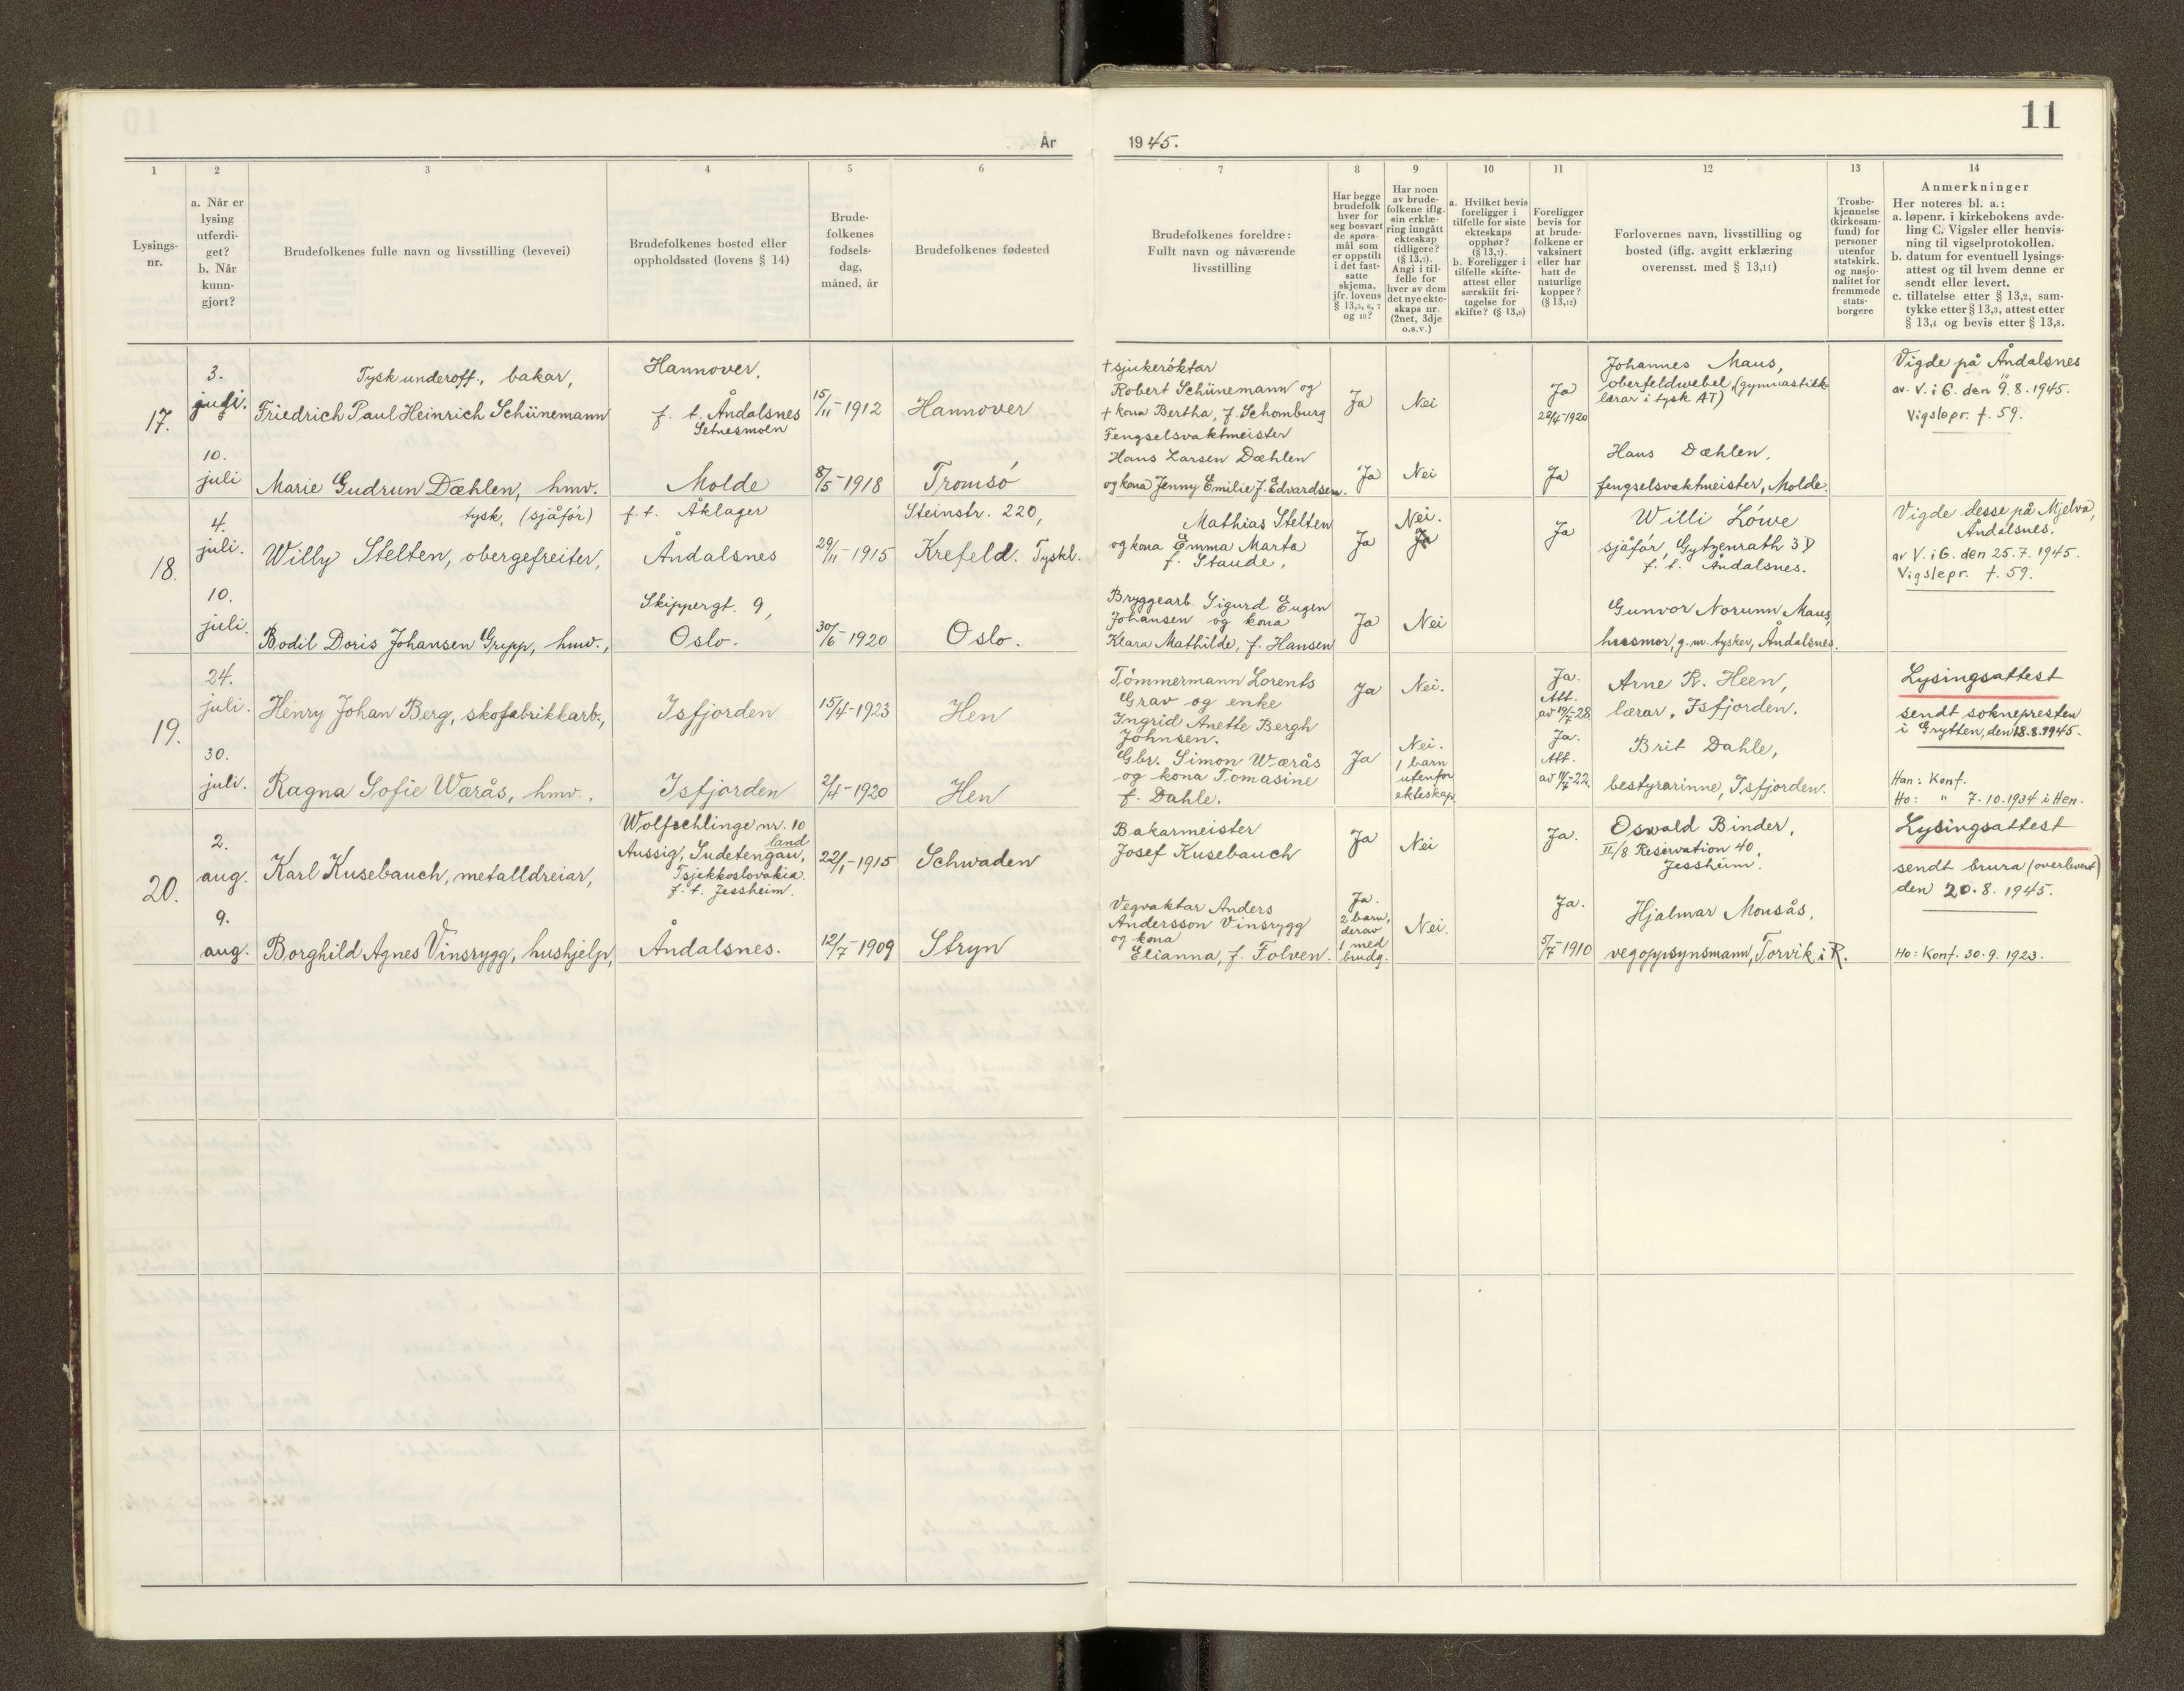 11
År
1945.
1
2
3
4
5
6
7
8
9
10
11
12
13
14
Lysings-
nr.
a. Når er
lysing
utferdi-
get?
b. Når
kunn-
gjort?
Brudefolkenes fulle navn og livsstilling (levevei)
Brudefolkenes bosted eller
oppholdssted (lovens § 14)
Brude-
folkenes
fødsels-
dag,
måned, år
Brudefolkenes fødested
Brudefolkenes foreldre:
Fullt navn og nåværende
livsstilling
Har begge
brudefolk
hver for
seg besvart
de spørs-
mål som
er oppstilt
i det fast-
satte
skjema,
jfr. lovens
§ 13,5, 6, 7
og 10?
Har noen
av brude-
folkene iflg.
sin erklæ-
ring inngått
ekteskap
tidligere?
(§ 13,7).
Angi i til-
felle for
hver av dem
det nye ekte-
skaps nr.
(2net, 3dje
o.s.v.)
a. Hvilket bevis
foreligger i
tilfelle for siste
ekteskaps
opphør?
(§ 13,7).
b. Foreligger i
tilfelle skifte-
attest eller
særskilt fri-
tagelse for
skifte? (§ 13,9)
Foreligger
bevis for
at brude-
folkene er
vaksinert
eller har
hatt de
naturlige
kopper?
(§ 13,12)
Forlovernes navn, livsstilling og
bosted (iflg. avgitt erklæring
overensst. med § 13,11)
Trosbe-
kjennelse
(kirkesam-
fund) for
personer
utenfor
statskirk.
og nasjo-
nalitet for
fremmede
stats-
borgere
Anmerkninger
Her noteres bl. a.:
a. løpenr. i kirkebokens avde-
ling C. Vigsler eller henvis-
ning til vigselprotokollen.
b. datum for eventuell lysings-
attest og til hvem denne er
sendt eller levert.
c. tillatelse etter § 13,2, sam-
tykke etter § 13,3, attest etter
§ 13,4 og bevis etter § 13,8.
17.
3.
juli.
Tysk underoff., bakar,
Friedrich Paul Heinrich Schünemann
Hannover,
f. t. Åndalsnes
Setnesmoen
15/11-1912
Hannover
† sjukerøktar
Robert Schünemann og
† kona Bertha, f. Schomburg
Ja
Nei
Ja
22/4-1920
Johannes Maus,
oberfeldwebel, (gymnastikk
lærar i tysk AT)
Vigde på Åndalsnes
av V. i G. den 9. 8. 1945.
Vigslepr. f. 59.
10.
juli
Marie Gudrun Dæhlen, hmv.
Molde
8/5-1918
Tromsø
Fengselsvaktmeister
Hans Larsen Dæhlen
og kona Jenny Emilie f. Edvardsen.
Ja
Nei
Ja
Hans Dæhlen,
fengselsvaktmeister, Molde.
18.
4.
juli.
tysk, (sjåfør)
Willy Stelten, obergefreiter,
f. t. Åklager
Åndalsnes
29/11-1915
Steinstr. 220,
Krefeld. Tyskl.
Mathias Stelten
og kona Emma Marta
f. Staude,
Ja
Nei.
Ja
Willi Löwe
sjåfør, Gytzenrath 3D
f. t. Åndalsnes.
Vigde desse på Mjelva,
Åndalsnes,
av V. i G. den 25. 7. 1945.
Vigslepr. f. 59.
10.
juli.
Bodil Doris Johansen Gripp, hmv.,
Skippergt. 9,
Oslo.
30/6-1920
Oslo.
Bryggearb. Sigurd Eugen
Johansen og kona
Klara Mathilde, f. Hansen
Ja
Nei
Gunvor Norunn Maus,
husmor, g. m. tysker, Åndalsnes.
19.
24.
juli.
Henry Johan Berg, skofabrikkarb.,
Isfjorden
15/4-1923
Hen
Tømmermann Lorents
Grav og enke
Ingrid Anette Bergh
Johnsen.
Ja
Nei.
Ja.
Att.
av 19/7-28.
Arne R. Heen,
lærar, Isfjorden.
Lysingsattest
sendt soknepresten
i Grytten, den 18. 8. 1945.
30.
juli.
Ragna Sofie Wærås, hmv.,
Isfjorden
2/4-1920
Hen
Gbr. Simon Wærås
og kona Tomasine
f. Dahle.
Ja
Nei.
1 barn
utenfor
ekteskap.
Ja.
Att.
Brit Dahle,
bestyrarinne, Isfjorden.
Han: Konf.
Ho: " 7. 10. 1934 i Hen.
20.
2.
aug.
Karl Kusebauch, metalldreiar,
Wolfschlinge nr. 10
land
Aussig, Sudetengau,
Tsjekkoslovakia.
f. t. Jessheim.
22/1-1915
Schwaden
Bakarmeister
Josef Kusebauch
Ja
Nei
Ja.
Oswald Binder,
II/8 Reservation 40,
Jessheim.
Lysingsattest
sendt brura (overlevert)
den 20. 8. 1945.
9.
aug.
Borghild Agnes Vinsrygg, hushjelp,
Åndalsnes.
12/7-1909
Stryn
Vegvaktar Anders
Andersson Vinsrygg
og kona
Elianna, f. Folven.
Ja.
2 barn,
derav
1 med
brudg.
Nei.
Ja.
5/7-1910
Hjalmar Monsås,
vegoppsynsmann, Torvik i R.
Ho: Konf. 30. 9. 1923.